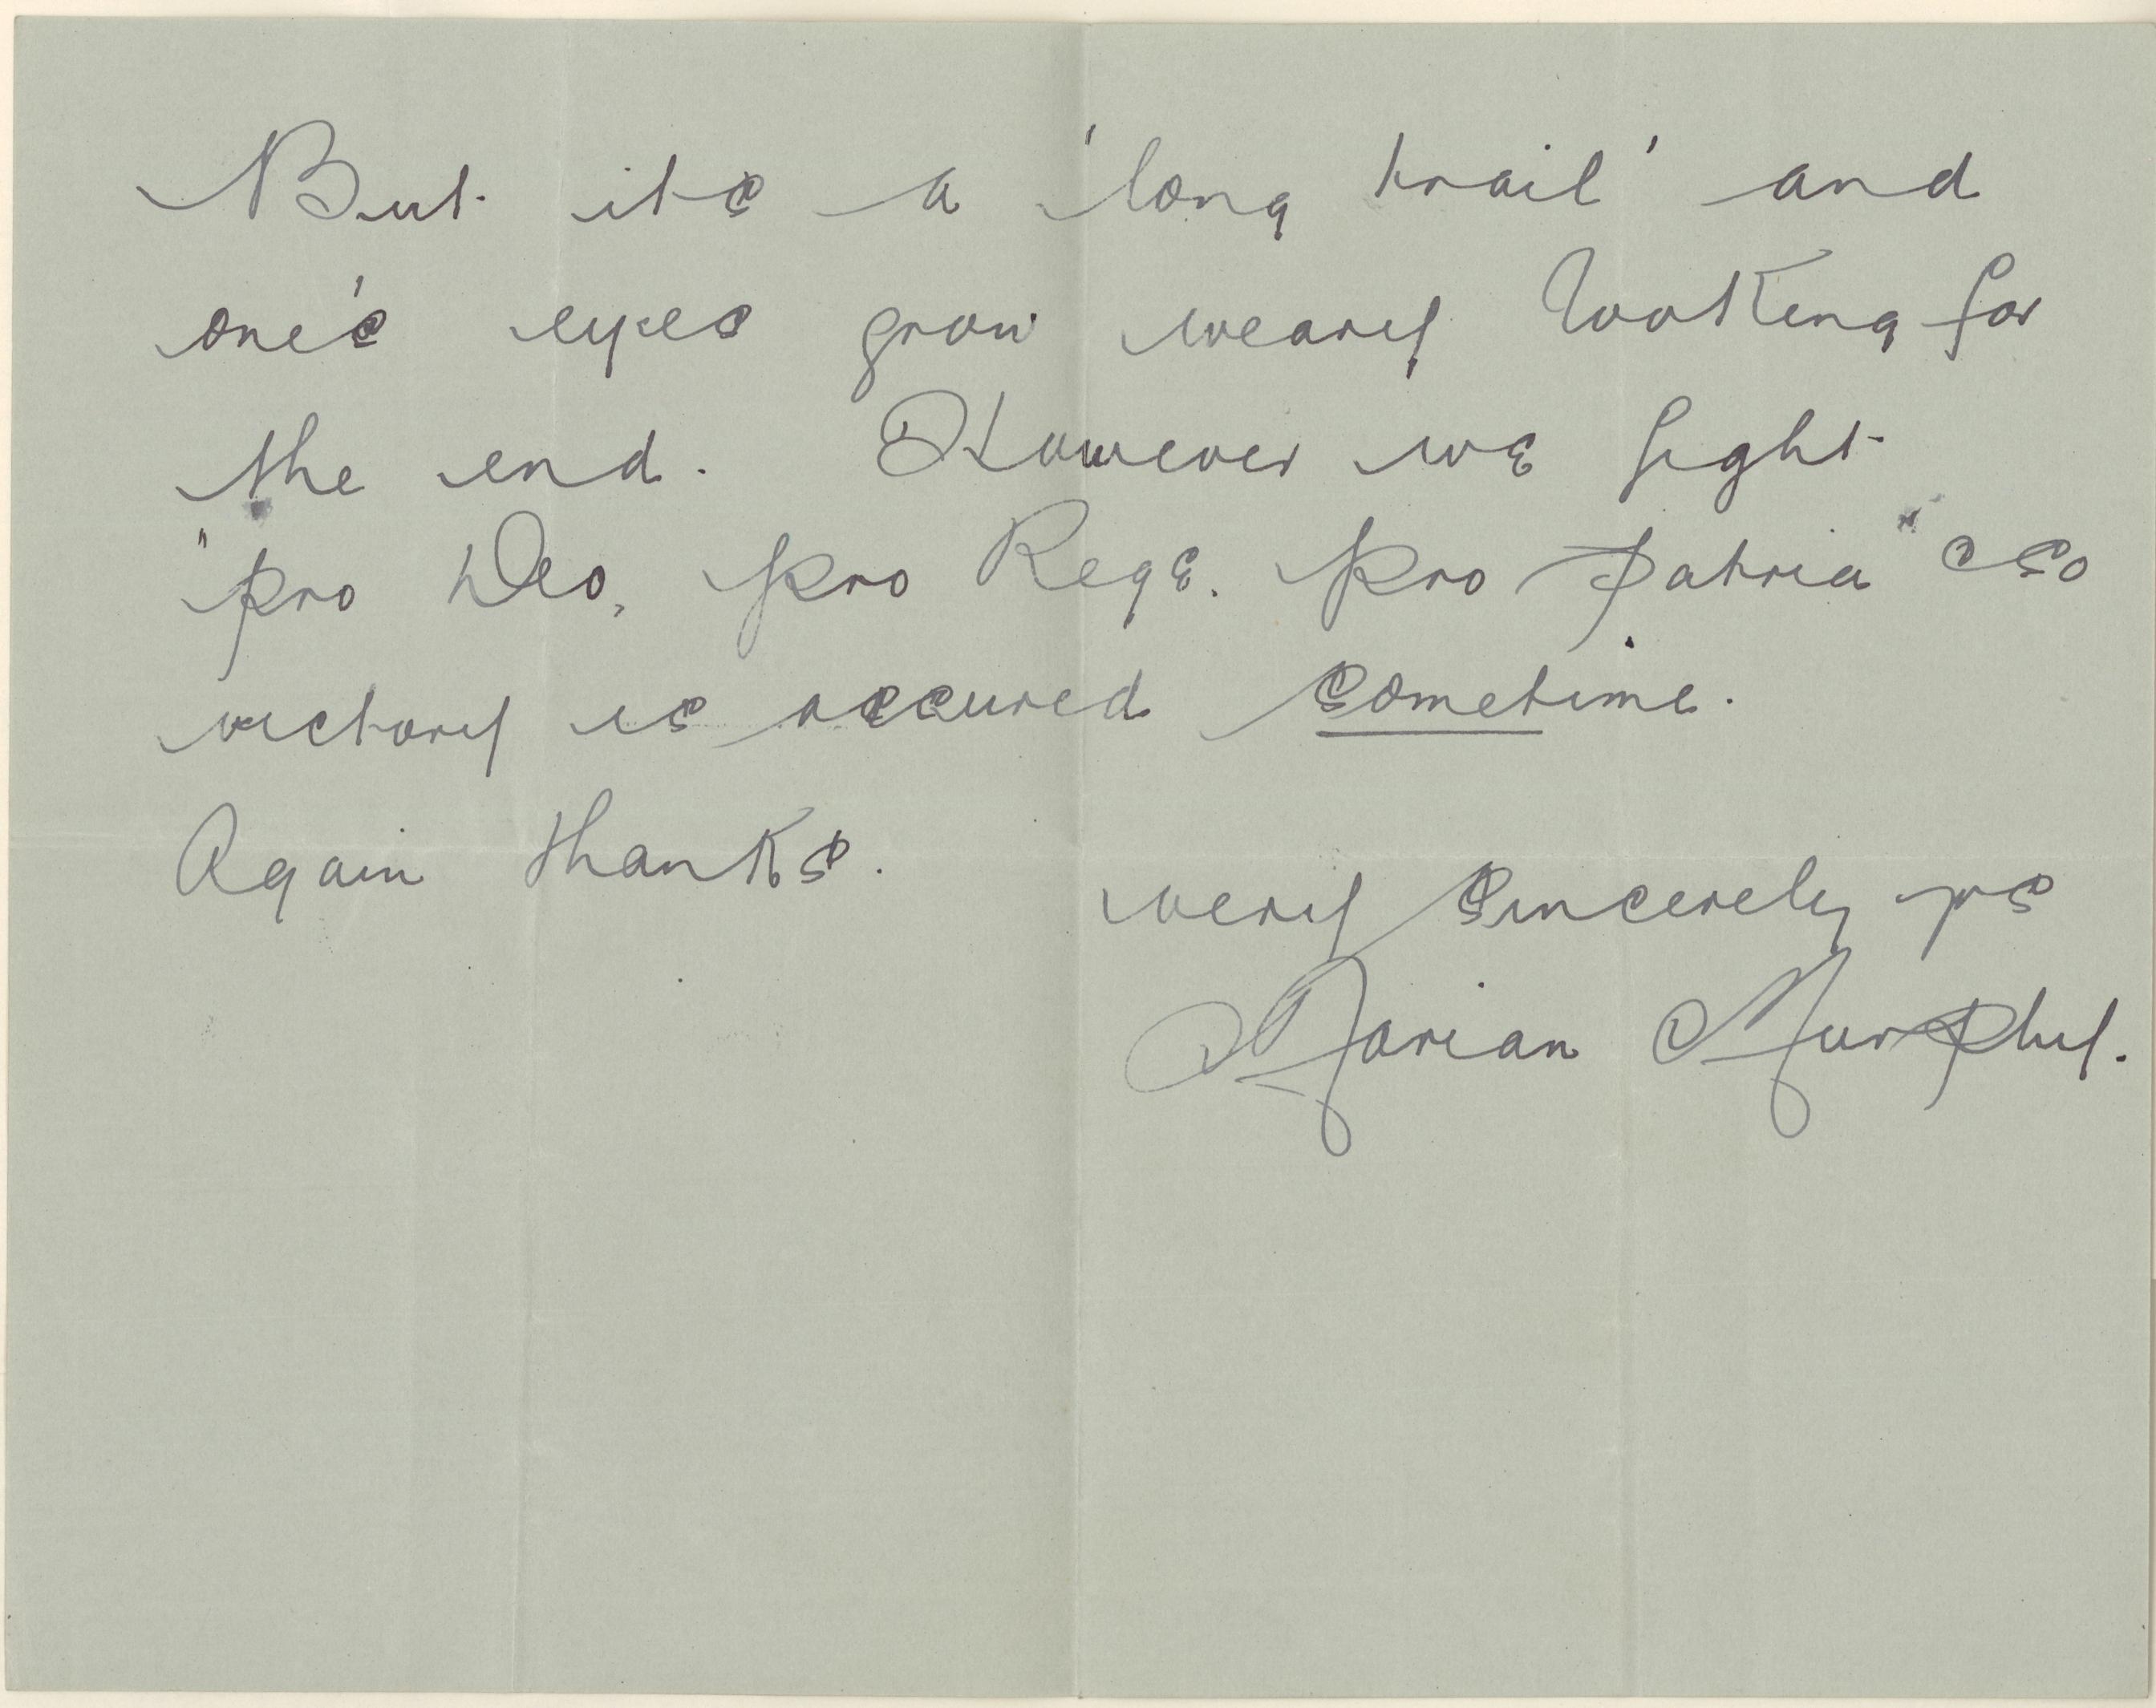 But its a 'long trail' and
one's eyes grow weary looking for
the end. However we fight
"pro Deo, pro Rege. pro Patria" so
victory is assured sometime.
Again thanks.
very sincerely yrs
Marian Murphy.